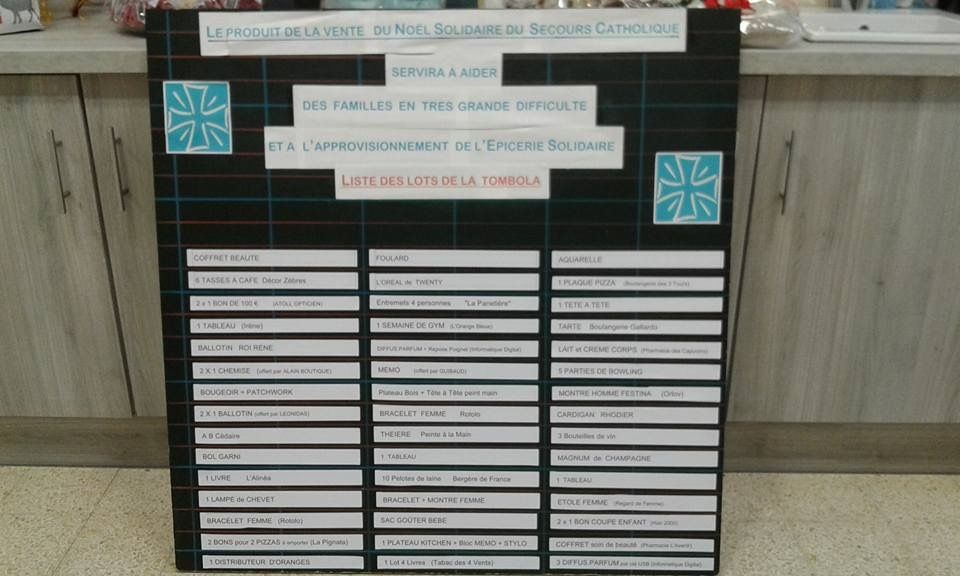 LE PRODUIT DE LA VENTE DU NOËL SOLIDAIRE DU SECOURS CATHOLIQUE
SERVIRA A AIDER
DES FAMILLES EN TRES GRANDE DIFFICULTE
ET A L'APPROVISIONNEMENT DE L'EPICERIE SOLIDAIRE
LISTE DES LOTS DE LA TOMBOLA
COFFRET BEAUTE
6 TASSES A CAFE Décor Zèbres
2 x 1 BON DE 100 € (ATOLL OPTICIEN)
1 TABLEAU (Irène)
BALLOTIN ROI RENE
2 X 1 CHEMISE (offert par ALAIN BOUTIQUE)
BOUGEOIR + PATCHWORK
2 X 1 BALLOTIN (offert par LEONIDAS)
A B Cédaire
BOL GARNI
1 LIVRE L'Alinéa
1 LAMPE de CHEVET
BRACELET FEMME (Rotolo)
2 BONS pour 2 PIZZAS à emporter (La Pignata)
1 DISTRIBUTEUR D'ORANGES
FOULARD
L'OREAL de TWENTY
Entremets 4 personnes "La Panetière"
1 SEMAINE DE GYM (L'Orange Bleue)
DIFFUS.PARFUM + Repose Poignet (Informatique Digital)
MEMO (offert par GUIBAUD)
Plateau Bois + Tête à Tête peint main
BRACELET FEMME Rotolo
THEIERE Peinte à la Main
1 TABLEAU
10 Pelotes de laine Bergère de France
BRACELET + MONTRE FEMME
SAC GOÛTER BEBE
1 PLATEAU KITCHEN + Bloc MEMO + STYLO
1 Lot 4 Livres (Tabac des 4 Vents)
AQUARELLE
1 PLAQUE PIZZA (Boulangerie des 3 Tours)
1 TETE A TETE
TARTE Boulangerie Gallardo
LAIT et CREME CORPS (Pharmacie des Capucins)
5 PARTIES DE BOWLING
MONTRE HOMME FESTINA (Orlov)
CARDIGAN RHODIER
3 Bouteilles de vin
MAGNUM de CHAMPAGNE
1 TABLEAU
ETOLE FEMME (Regard de Femme)
2 x 1 BON COUPE ENFANT 2000)
COFFRET soin de beauté (Pharmacie
3 DIFFUS.PARFUM par clé USB (Informatique Digital)